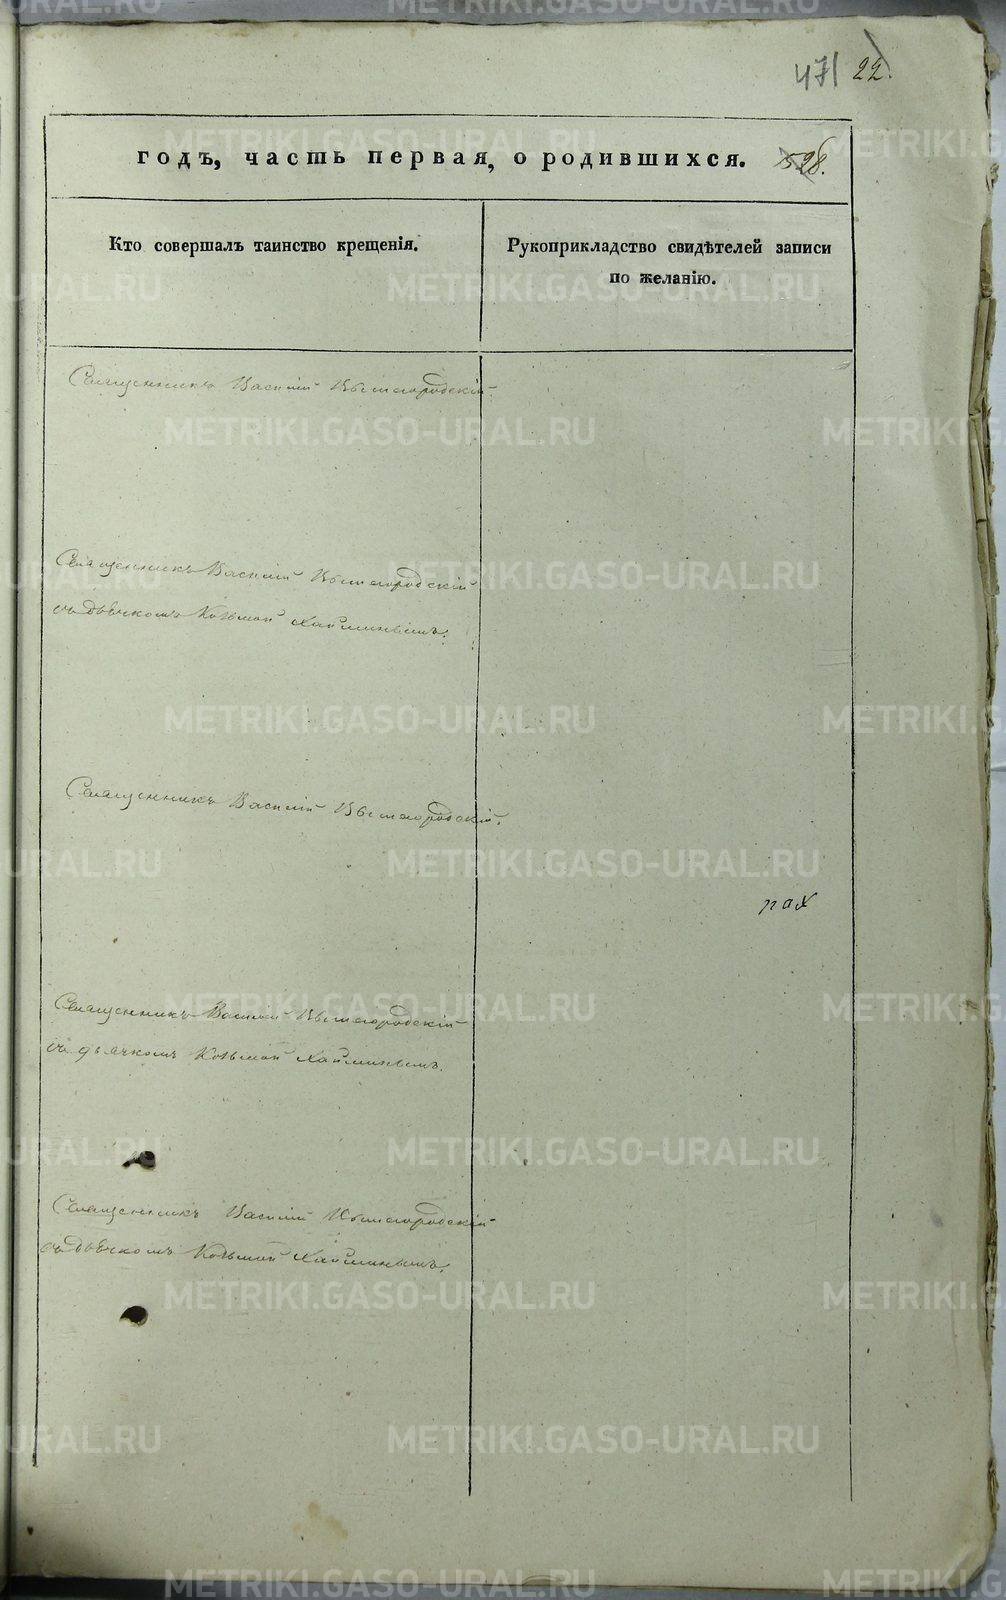 471 22.
годъ, часть первая, о родившихся. 598.
Кто совершалъ таинство крещенія.
Рукоприкладство свидѣтелей записи
по желанію.
Священникъ Василій Вышегородскій.
Священникъ Василій Вышегородскій
съ дьячкомъ Козьмой Хайминымъ.
Священникъ Василій Вышегородскій.
Священникъ Василій Вышегородскій
съ дьячкомъ Козьмой Хайминымъ.
Священникъ Василій Вышегородскій
съ дьячкомъ Козьмой Хайминымъ.
METRIKI.GASO-URAL.RU